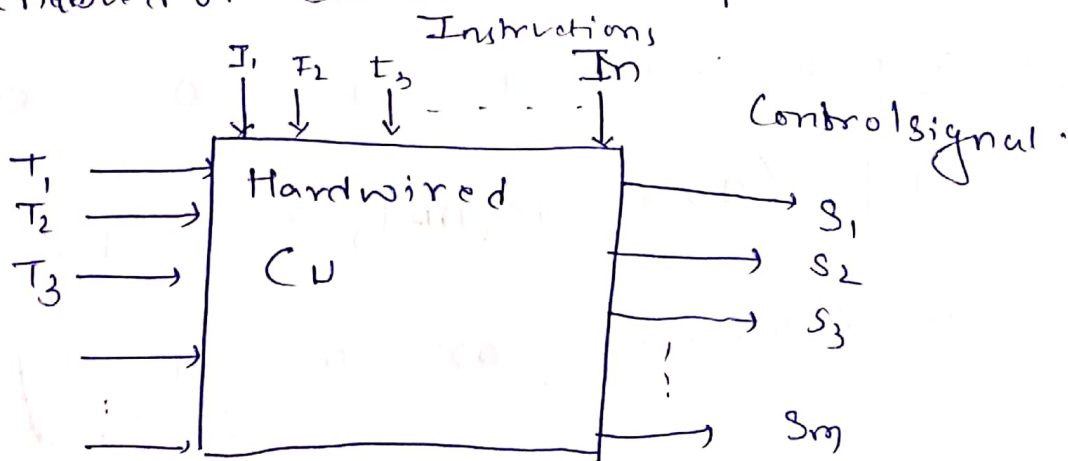 Instructions
I1 I2 I3 In
Control signal.
T1
T2
T3
Hardwired
CU
S1
S2
S3
Sm